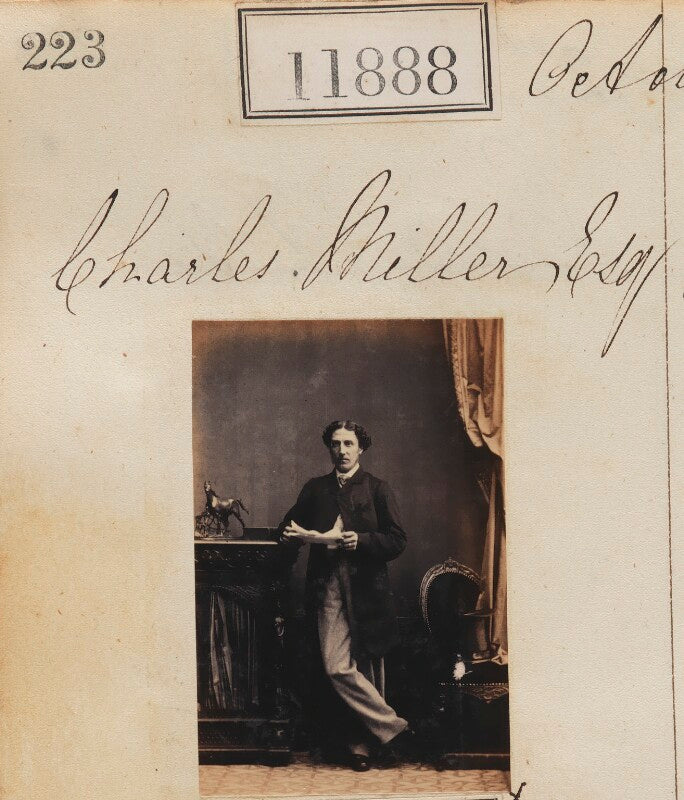 223
11888
Charles Miller Esq